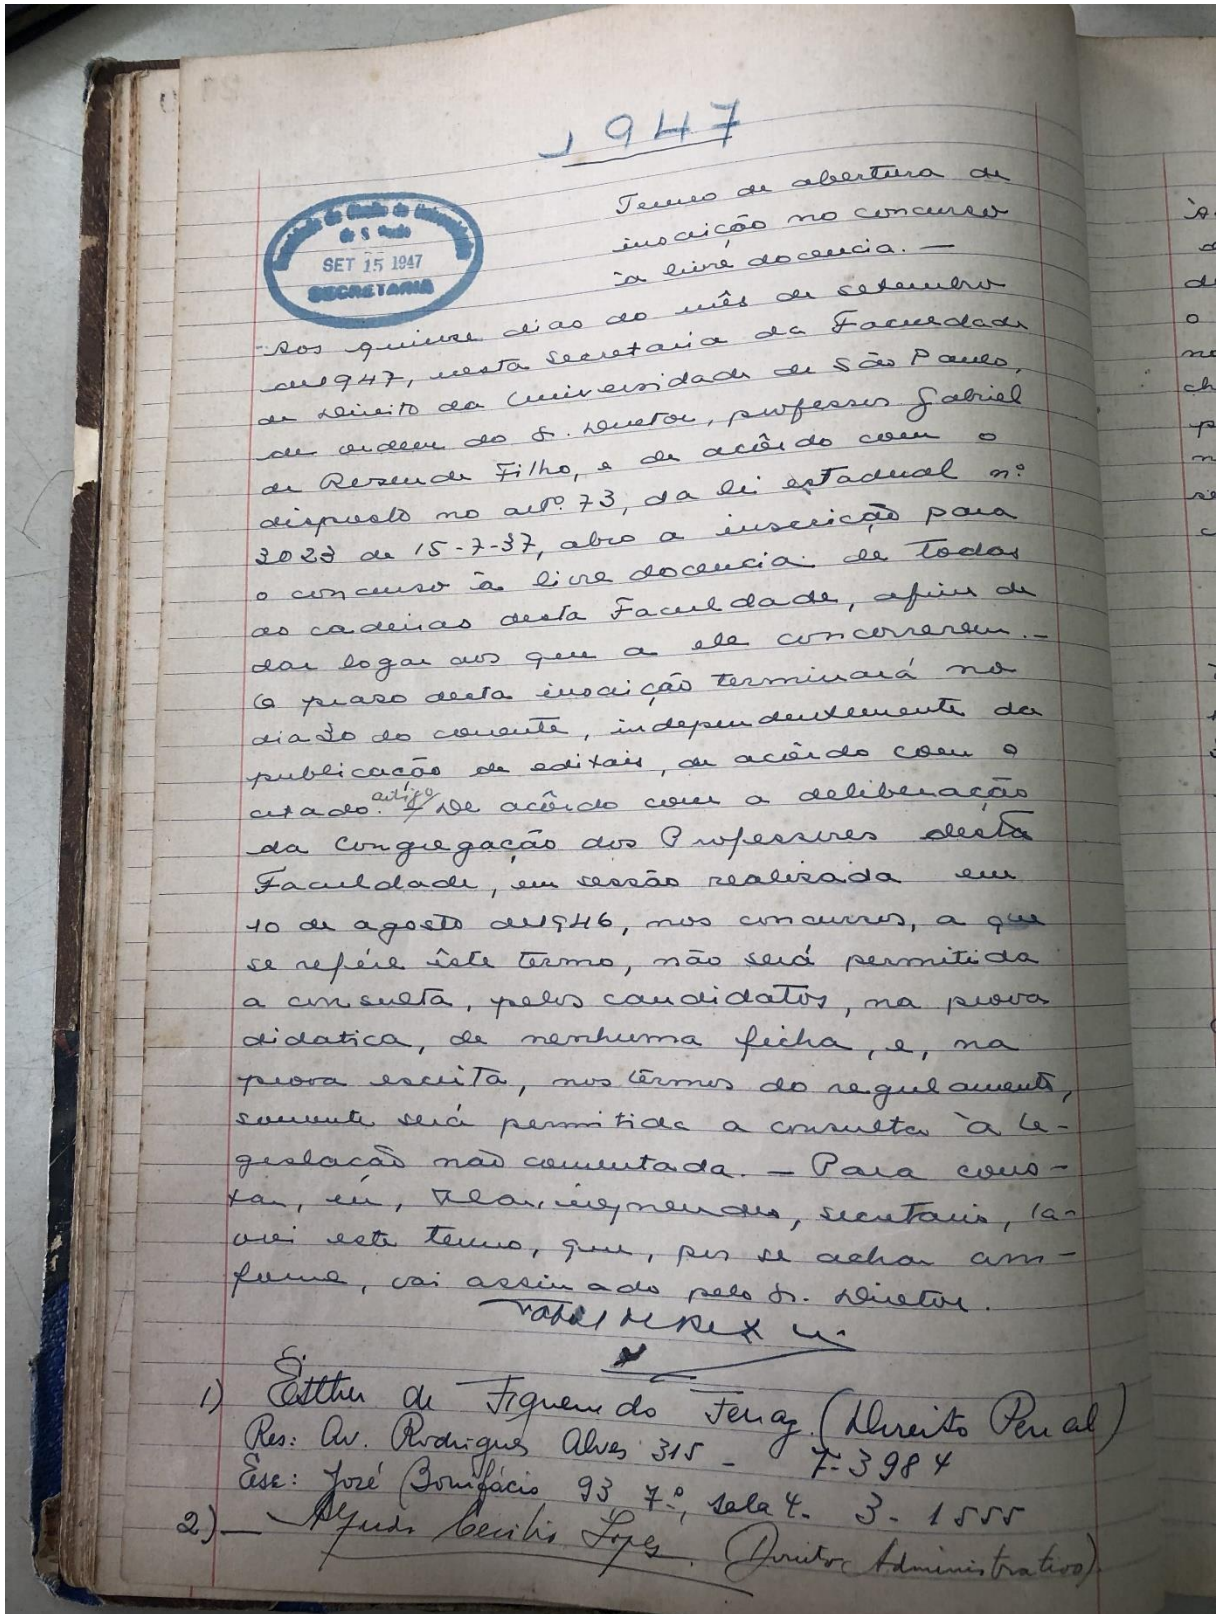 1947
Faculdade de Direito da Universidade
de S. Paulo
SET 15 1947
SECRETARIA
Termo de abertura de
inscrição no concurso
à livre docencia. —
Aos quinze dias do mês de setembro
de 1947, nesta secretaria da Faculdade
de Direito da Universidade de São Paulo,
de ordem do Sr. Diretor, professor Gabriel
de Resende Filho, e de acôrdo com o
disposto no artº. 73, da lei estadual nº
3023 de 15-7-37, abro a inscrição para
o concurso à livre docencia de todas
as cadeiras desta Faculdade, afim de
dar logar aos que a ele concorrerem. —
O praso desta inscrição terminará no
dia 30 do corrente, independentemente da
publicação de editais, de acôrdo com o
citado artigo. De acôrdo com a deliberação
da Congregação dos Professores desta
Faculdade, em sessão realisada em
10 de agosto de 1946, nos concursos, a que
se refére êste termo, não será permitida
a consulta, pelos candidatos, na prova
didatica, de nenhuma ficha, e, na
prova escrita, nos têrmos do regulamento,
somente será permitida a consulta à le-
gislação não comentada. — Para cons-
tar, eu, secretario, la-
vrei este termo, que, por se achar con-
forme, vai assinado pelo Sr. Diretor.
1) Esther de Figueiredo Ferraz (Direito Penal)
Res: Av. Rodrigues Alves 315 - 7-3984
Esc: José Bonifácio 93, 7º, sala 4. 3-1555
2) — Alfredo Cecilio Lopes. (Direito Administrativo)